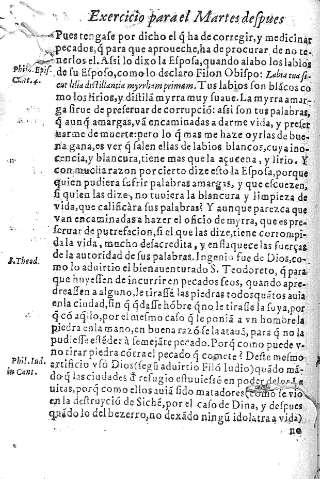 Exercicio para el Martes despues
Pues tengase por dicho el q̃ ha de corregir, y medicinar
pecados, q̃ para que aproueche, ha de procurar de no te-
nerlos el. Assi lo dixo la Esposa, quando alabo los labios
Philo. Epis.
de su Esposo, como lo declaro Filon Obispo: Labia tua si-
Cant. 4.
cut lilia distillantia myrrham primam. Tus labios son blãcos co
mo los lirios, y distilã myrra muy suaue. La myrra amar-
ga sirue de preseruar de corrupciõ: assi son tus palabras,
q̃ aunq̃ amargas, vã encaminadas a darme vida, y preser
uarme de muerte: pero lo q̃ mas me haze oyrlas de bue-
na gana, es ver q̃ salen ellas de labios blancos, cuya ino-
cencia, y blancura, tiene mas que la açucena, y lirio. Y
con mucha razon por cierto dize esto la Esposa, porque
quien pudiera sufrir palabras amargas, y que escuezen,
si quien las dize, no tuuiera la blancura y limpieza de
vida, que calificàra sus palabras? Y aunque parezca que
van encaminadas a hazer el oficio de myrra, que es pre-
seruar de putrefacion, si el que las dize, tiene corrompi-
da la vida, mucho desacredita, y enflaquece las fuerças
de la autoridad de sus palabras. Ingenio fue de Dios, co-
S. Theod.
mo lo aduirtio el bienauenturado S. Teodoreto, q̃ para
que huyessẽ de incurrir en pecados feos, quando ape-
dreassẽn a alguno, le tirassẽ las piedras todos quãtos auia
en la ciudad, sin q̃ q̃dasse hõbre q̃ no le tirasse la suya, por
q̃ cõ aq̃llo, por el mesmo caso q̃ le poniã a vn hombre la
piedra en la mano, en buena razõ se la ataua, para q̃ no la
pudiesse esteder à semejãte pecado. Porq̃ como puede v-
no tirar piedra cõtra el pecado q̃ comete? Deste mesmo
Phil. Iud.
artificio vsò Dios (segũ aduirtio Filõ Iudio) quãdo mã-
in Cant.
do q̃ las ciudades d̃ refugio estuuiessẽ en poder de los Le
uitas, porq̃ como ellos auiã sido matadores (como se vio
en la destruyciõ de Sichẽ, por el caso de Dina, y despues
quãdo lo del bezerro, no dexãdo ningũ idolatra a vida)
no